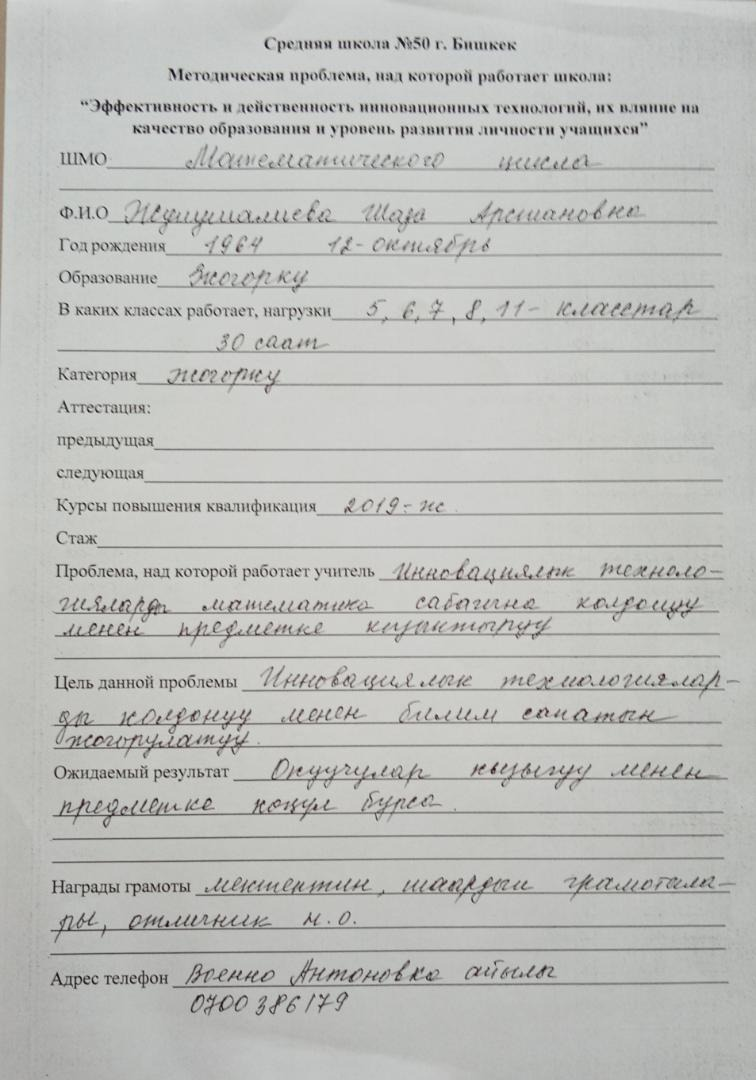 Средняя школа №50 г. Бишкек
Методическая проблема, над которой работает школа:
“Эффективность и действенность инновационных технологий, их вляние на
качество образования и уровень развития личности учащихся”
ШМО Математического цикла
Ф.И.О Арстановна
Год рождения 1964 12-октябрь
Образование Жогорку
В каких классах работает, нагрузки 5, 6, 7, 8, 11- класстар
30 саат
Категория жогорку
Аттестация:
предыдущая
следующая
Курсы повышения квалификация 2019-ж.
Стаж
Проблема, над которой работает учитель Инновациялык техноло-
гияларды математика сабагына колдонуу
менен предметке кызыктыруу
Цель данной проблемы Инновациялык технологиялар-
ды колдонуу менен билим сапатын
жогорулатуу.
Ожидаемый результат Окуучулар кызыгуу менен
предметке көңүл бурса.
Награды грамоты мектептин, шаардын грамотала-
ры, отличник н.о.
Адрес телефон Военно Антоновка айылы
0700386179